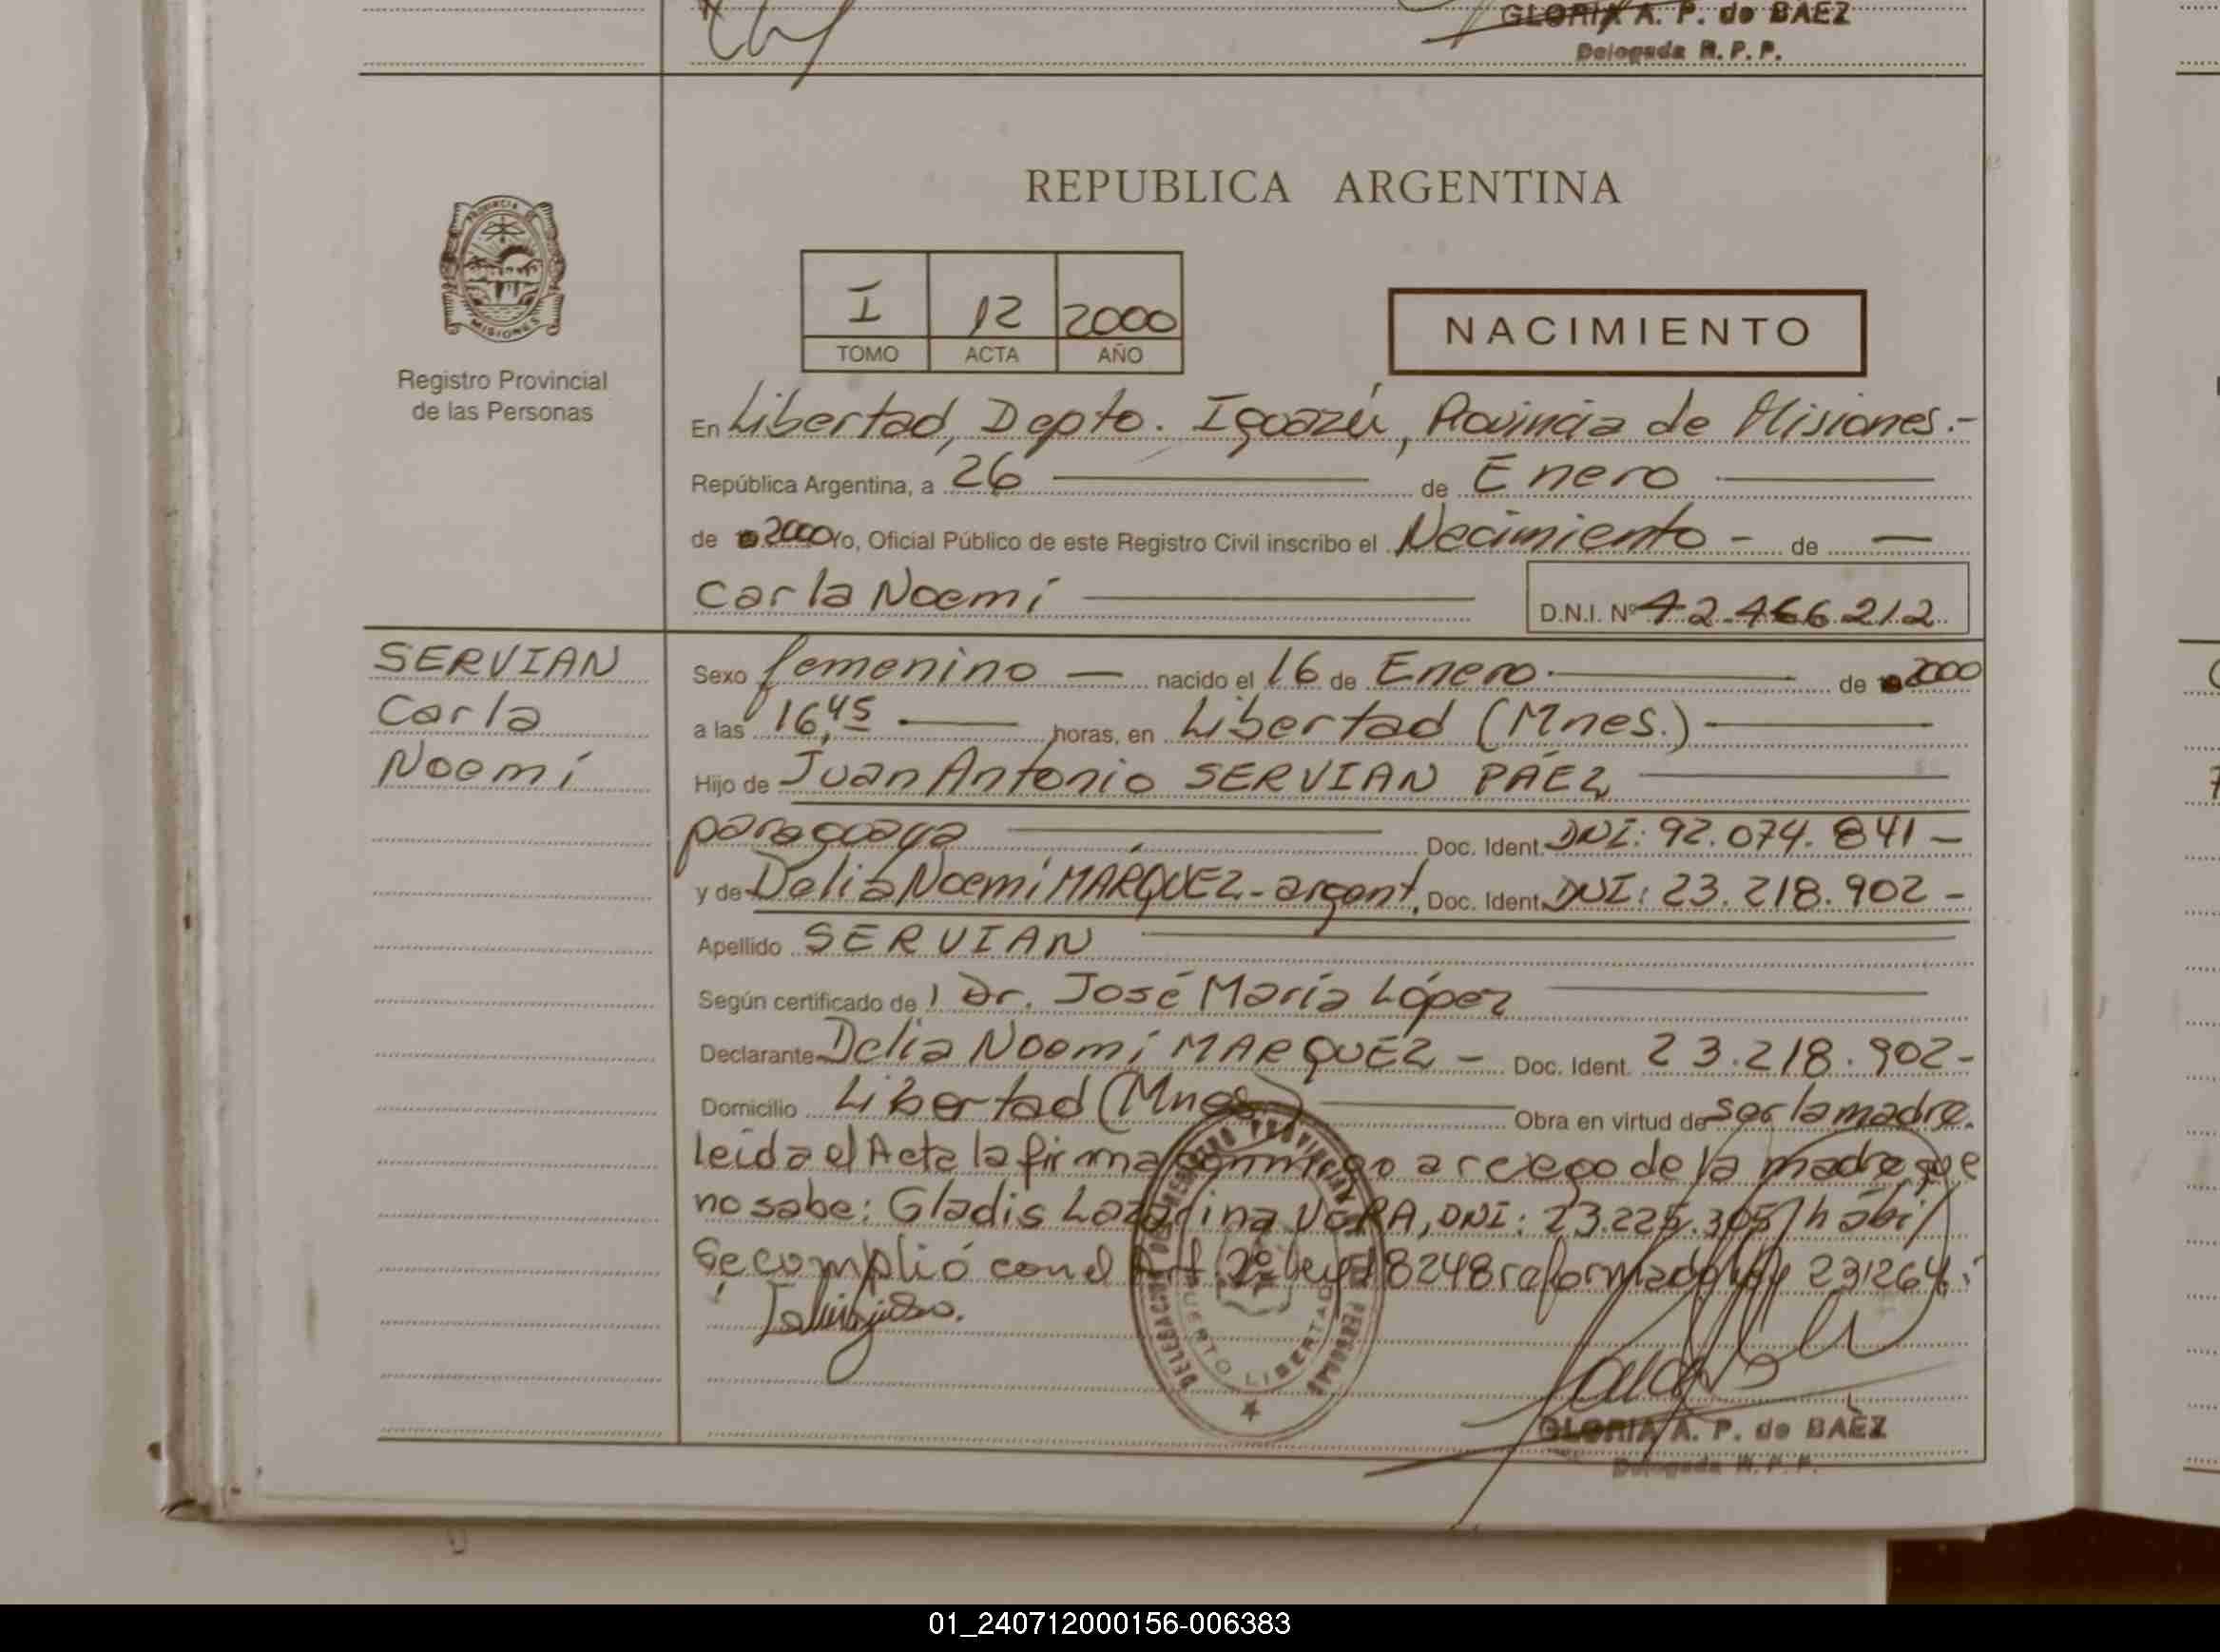 GLORIA A. P. de BAEZ
Delegada R. P. P.
PROVINCIA DE
MISIONES
Registro Provincial
de las Personas
REPUBLICA ARGENTINA
I 12 2000
TOMO ACTA AÑO
NACIMIENTO
En Libertad, Depto. Iguazú, Provincia de Misiones.-
República Argentina, a 26 de Enero
de 2000 Yo, Oficial Público de este Registro Civil inscribo el Nacimiento - de —
Carla Noemí
D.N.I. Nº 42.466.212
SERVIAN
Carla
Noemí
Sexo femenino — nacido el 16 de Enero de 2000
a las 16,45 horas, en Libertad (Mnes.)
Hijo de Juan Antonio SERVIAN PÁEZ
paraguaya Doc. Ident. DNI: 92.074.841 -
y de Delia Noemí MÁRQUEZ - argent. Doc. Ident. DNI: 23.218.902 -
Apellido SERVIAN
Según certificado de Dr. José María López
Declarante Delia Noemí MARQUEZ - Doc. Ident. 23.218.902-
Domicilio Libertad (Mnes.) Obra en virtud de ser la madre.
leida el Acta la firma conmigo a ruego de la madre que
no sabe: Gladis VERA, DNI: 23.225.305 hábil
Se complió con el Art. 2º ley 18248 reformado ley 23264.
DELEGACION REGISTRO PROVINCIAL PERSONAS
PUERTO LIBERTAD
GLORIA A. P. de BAEZ
Delegada R. P. P.
01_240712000156-006383